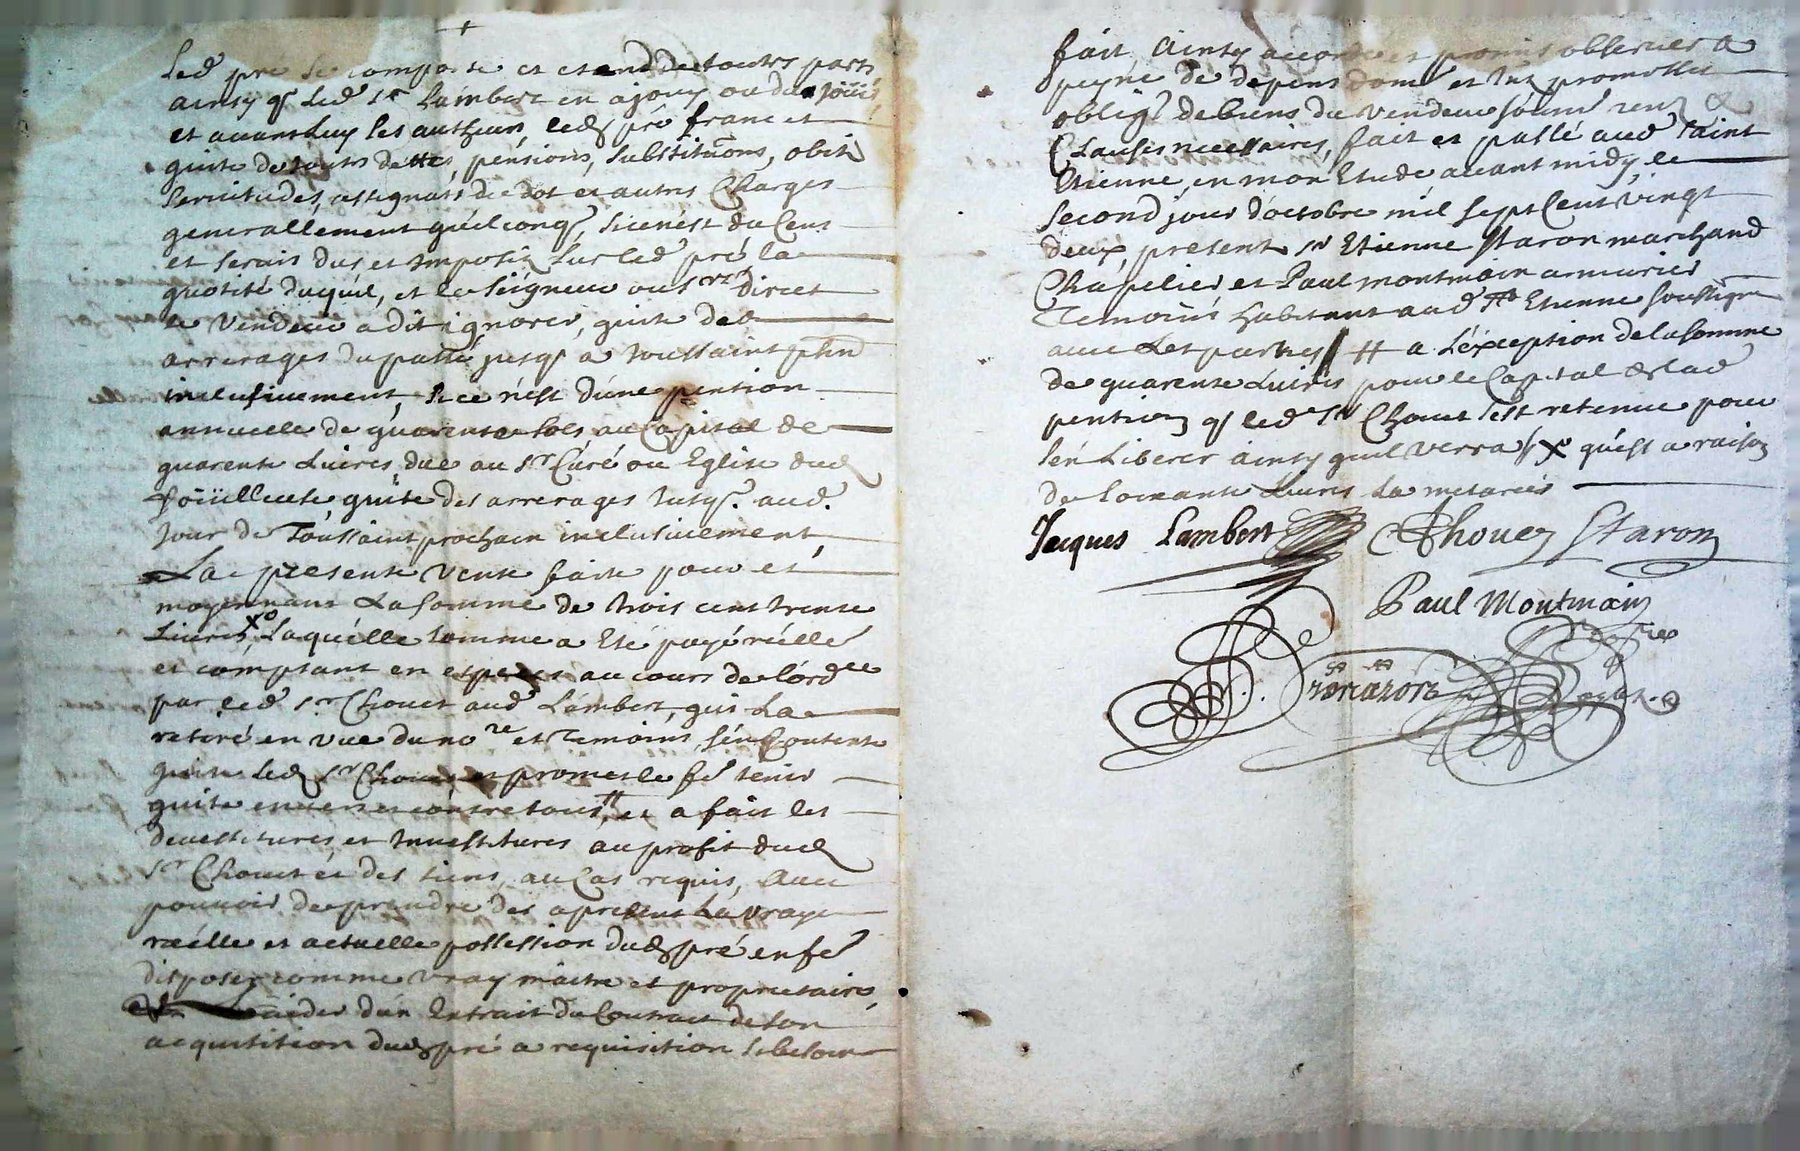 Led pré se comporte et etend de toutes parts
ainsy q Led Sr Lambert en a jouy ou du jöüir
et avant Luy Ses autheurs, ledt pré franc et
quitte de toutes dettes, pensions, Substituons, obits
Servitudes, assignats de dot et autres Charges
generallement quelconq, Si ce n'est du Cens
et Servis dus et Imposés Sur led pré la
quotité duquel, et le Seigneur ou Srs Direct
le Vendeur a dit ignorer, quitte des
arrerages du passé jusqs a toussaint pchn
inclusivement, Si ce n'est d'une pention
annuelle de quarente Sols au Capital de
quarente Livres due au Sr Curé ou Eglise dud
foüilleuse, quitte des arrerages Jusqs aud
Jour de Toussaint prochain inclusivement,
La presente Vente faite pour et
moyennant La Somme de trois cent trente
Livres Xo, Laquelle Somme a Eté payé réelle
et comptant en especes au cours de l'ordce
par led Sr Chouet aud Lambert, qui La
retiré en vue du nore et Temoins, S'en Contente
quitte Led Sr Chouet, et promet le fe tenir
quitte envers et contre tous #, et a fait les
devestitures et Investitures au profit dud
Sr Chouet et des siens, au Cas requis, Avec
pouvoir de prendre des a present La vraye
réelle et actuelle possession dud pré en fe
disposer comme vray maitre et proprietaire,
aider d'un Extrait du Contract de son
acquisition dud pré a requisition Si besoin
fait Ainsy accordé et promis observer a
peyne de depens dom et Intz promettes
oblige de biens du Vendeur soumis renz &
Clauses necessaires, fait et passé aud Saint
Etienne, en mon Etude avant midy, le
Second jour d'octobre mil Sept Cent Vingt
deux, present Sr Etienne Staron marchand
Chapelier et Paul montmain armurier
Temoins habitant aud St Etienne Soussigne
avec Les parties # a L'exception de la Somme
de quarente Livres pour le Capital de lad
pention q led Sr Chouet S'est retenue pour
S'en Liberer ainsy quil verra Xo qu'est a raison
de Soixante Livres La meterée
Jacques Lambert Chouet Staron
Paul Montmain